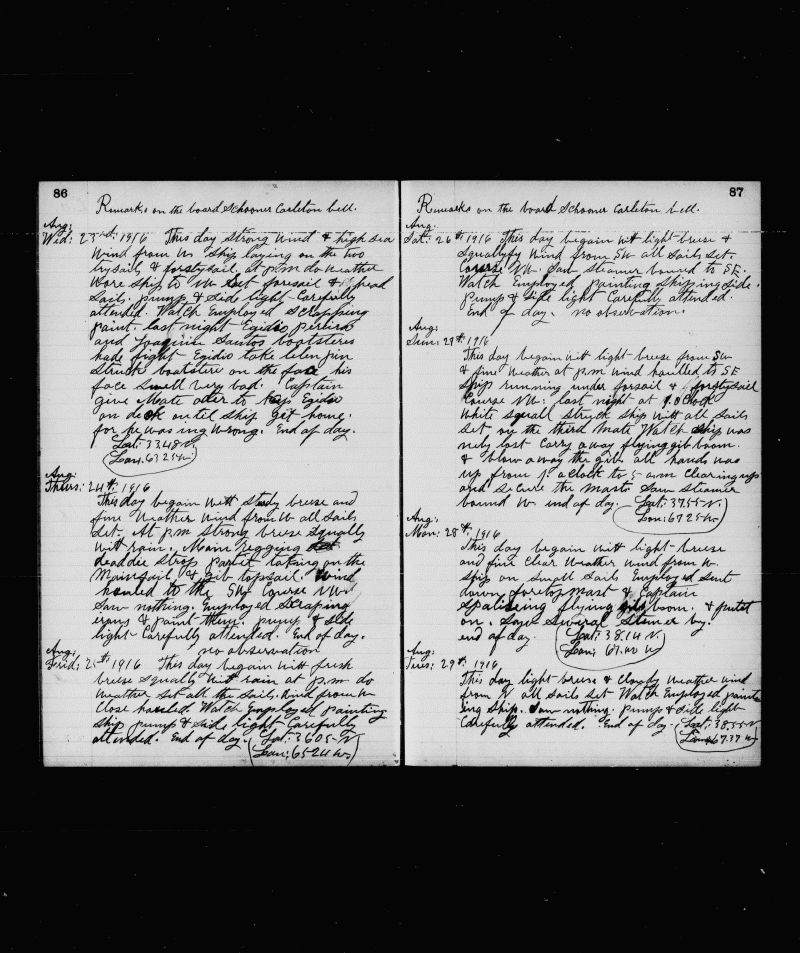 86
Remarks on the board Schooner Carleton bell.
Aug:
Wed: 23rd: 1916 This day strong wind & high sea
wind from W. Ship laying on the two
trysails & forstysail, at p.m do weather
wore ship to NW Set foresail & head
Sails, pump & side light Carefully
attended. Watch Employed Scrapping
paint. last night Egidio
and Joaquin Santos bootsteres
hade fight Egidio take
Struck bootstere on the face his
face Swell very bad. Captain
give Mate oder to kep Egidio
on deck ontil Ship get home.
for he was ing wrong. End of day.
Lat: 33.48 N.
Lon: 63 25 w.
Aug:
Thurs: 24th: 1916
This day begain witt study breese and
fine Weather wind from W all Sails
Set. At p.m Strong breese Squally
witt rain. Main regging
deaddie Strop partet taking on the
Mainsail & gib topsail. Wind
hauled to the SW Course NW.
Saw nothing. Employed Scraping
irons & paint them. pump & side
light Carefully attended. End of day.
no observation
Aug:
Frid: 25th 1916 This day begain witt fresh
breese Squally witt rain at p.m do
Weather Set all the Sails. Wind from W
Close hauled. Watch Employed painting
Ship pump & side light Carefully
attended. End of day. Lat: 36 05 N
Lon: 65 24 w.
87
Remarks on the board Schooner Carleton bell.
Aug:
Sat: 26th 1916 This day begain witt light breese &
Squallyfy wind from SW all Sails Set.
Course NW. Saw Steamer bound to SE.
Watch Employed painting Shipping side.
Pump & side light Carefully attended.
End of day. no observation.
Aug:
Sun: 27th 1916
This day begain witt light breese from SW
& fine Weather at p.m wind haulled to SE
Ship running under forsail & forstysail
Course NW. last night at 1. oClock
White squall Struck Ship witt all Sails
Set on the third Mate Watch Ship was
nely lost Carry away flying gib boom.
& blow away the gib all hands was
up from 1. oClock to 5 a.m Clearing up
and Secure the Masts Saw Steamer
bound W. end of day. Lat: 37.55 N.
Lon: 67 25 w.
Aug:
Mon: 28th 1916
This day begain witt light breese
and fine Clear Weather wind from W.
Ship on Small Sails Employed Sent
down foretopmast & Captain
Spalising flying gib boom. & putet
on. Saw Several Stemer by.
end of day. Lat: 38.14 N.
Lon: 67.00 w
Aug:
Tues: 29th: 1916,
This day light breese & Cloudy Weather wind
from W all Sails Set Watch Employed paint
ing Ship. Saw nothing. Pump & side light
Carefully attended. End of day. Lat: 38.55 N
Lon: 67.37 w